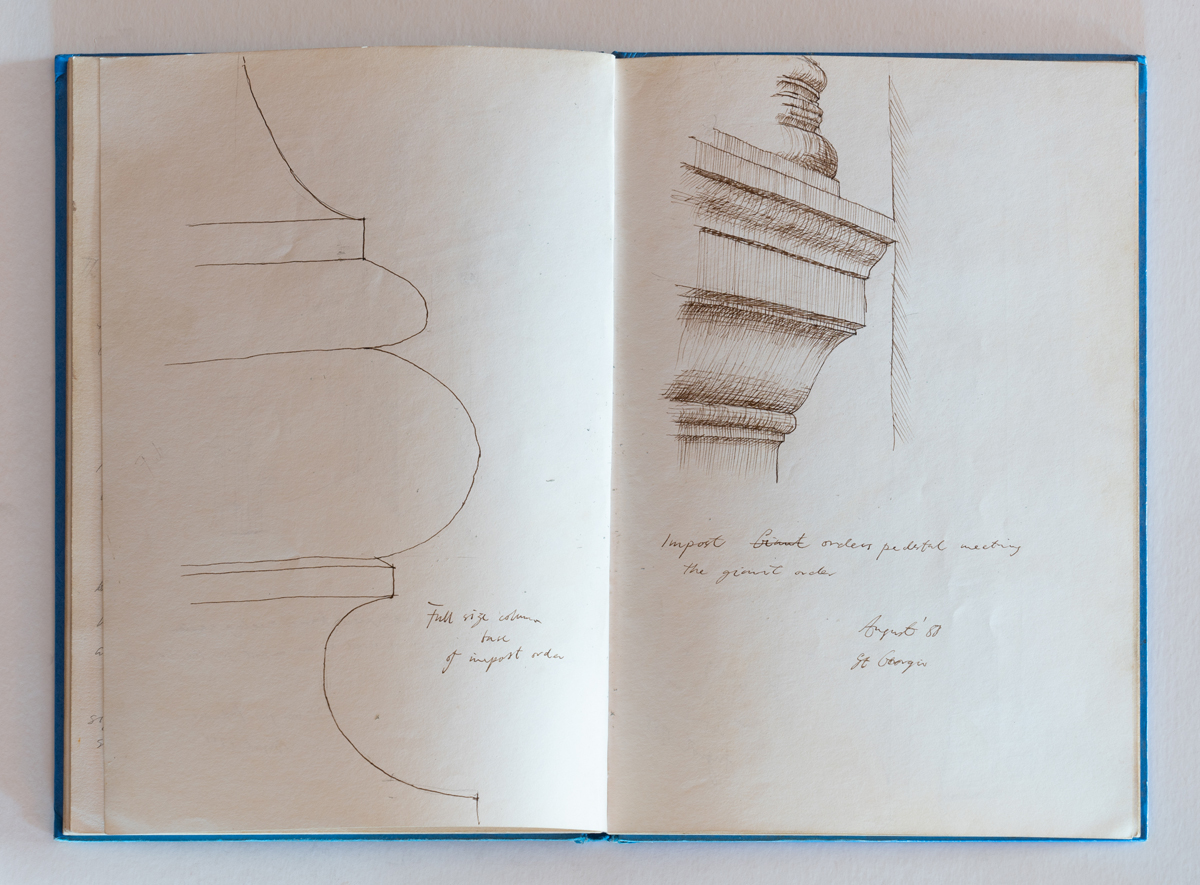 Full size column
base
of impost order
Impost Giant orders pedestal meeting
the giant order
August '8
St Georges